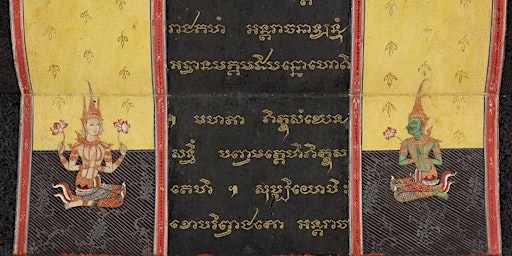 រាជគហំ អន្តរាចនាឡន្ទំ
អទ្ធានមគ្គប្បដិបន្នោហោតិ
។ មហតា ភិក្ខុសំឃេន
សទ្ធឹ បញ្ចមត្តេហិភិក្ខុស
តេហិ ។ សុប្បិយោបិ
ខោបរិព្វាជកោ អន្តរាច